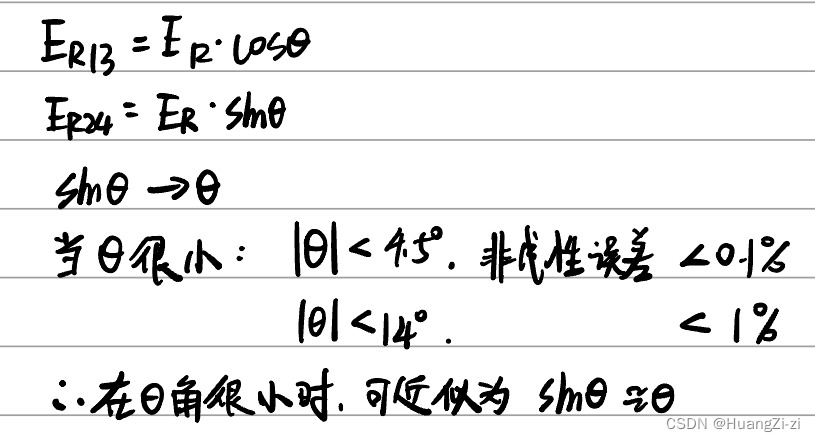 E_{R13} = E_R · cosθ
E_{R24} = E_R · sinθ
sinθ → θ
当θ很小： |θ| < 4.5°. 非线性误差 < 0.1%
|θ| < 14°. < 1%
∴在θ角很小时, 可近似为 sinθ≈θ
CSDN @HuangZi-zi